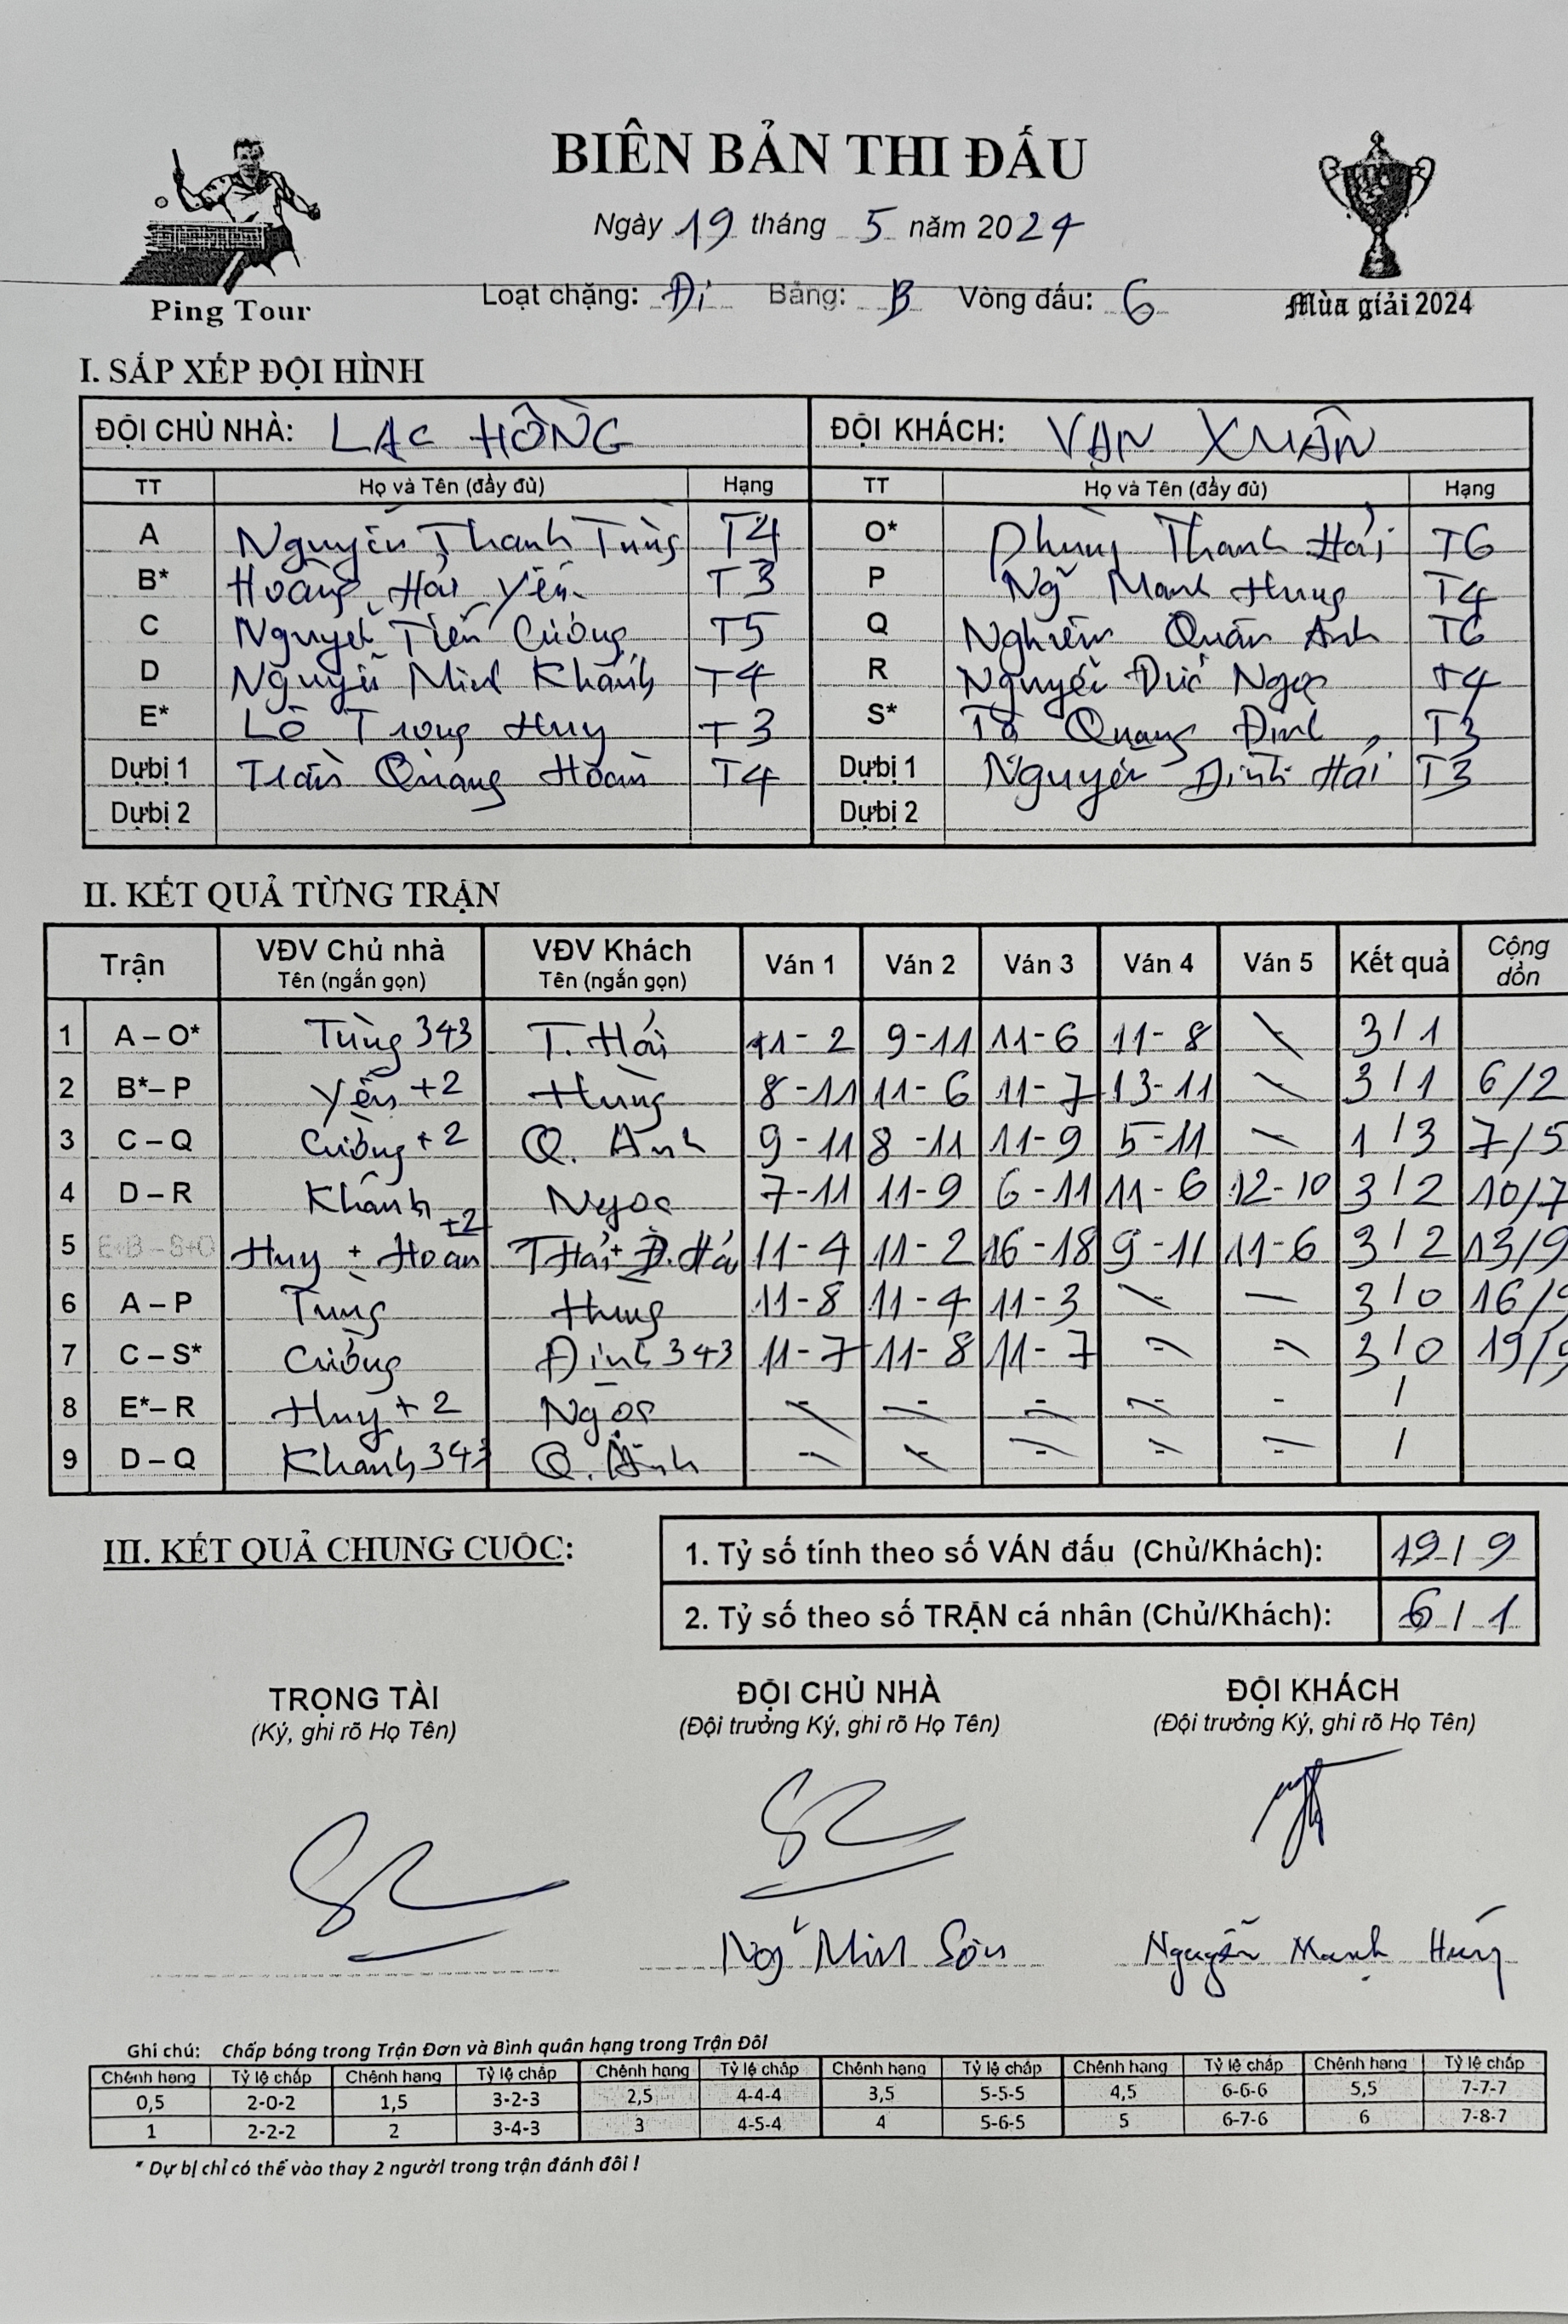 BIÊN BẢN THI ĐẤU
Ngày 19 tháng 5 năm 2024
Loạt chặng: Đi Bảng: B Vòng đấu: 6
Ping Tour
Mùa giải 2024
I. SẮP XẾP ĐỘI HÌNH
ĐỘI CHỦ NHÀ: LẠC HỒNG ĐỘI KHÁCH: VẠN XUÂN
TT Họ và Tên (đầy đủ) Hạng TT Họ và Tên (đầy đủ) Hạng
A Nguyễn Thanh Tùng T4 O* Phùng Thanh Hải T6
B* Hoàng Hải Yến T3 P Ng~ Mạnh Hùng T4
C Nguyễn Tiến Cường T5 Q Nghiêm Quân Anh T6
D Nguyễn Minh Khánh T4 R Nguyễn Đức Ngọc T4
E* Lê Trọng Huy T3 S* Tô Quang Định T3
Dự bị 1 Trần Quang Hoàn T4 Dự bị 1 Nguyễn Đình Hải T3
Dự bị 2 Dự bị 2
II. KẾT QUẢ TỪNG TRẬN
Trận VĐV Chủ nhà Tên (ngắn gọn) VĐV Khách Tên (ngắn gọn) Ván 1 Ván 2 Ván 3 Ván 4 Ván 5 Kết quả Cộng dồn
1 A – O* Tùng 343 T. Hải 11 - 2 9 - 11 11 - 6 11 - 8 \ 3 / 1
2 B* – P Yến +2 Hùng 8 - 11 11 - 6 11 - 7 13 - 11 \ 3 / 1 6/2
3 C – Q Cường +2 Q. Anh 9 - 11 8 - 11 11 - 9 5 - 11 \ 1 / 3 7/5
4 D – R Khánh Ngọc 7 - 11 11 - 9 6 - 11 11 - 6 12 - 10 3 / 2 10/7
5 E+B – S+O Huy + Hoàn +2 T Hải + Đ. Hải 11 - 4 11 - 2 16 - 18 9 - 11 11 - 6 3 / 2 13/9
6 A – P Tùng Hùng 11 - 8 11 - 4 11 - 3 - - 3 / 0 16/9
7 C – S* Cường Định 343 11 - 7 11 - 8 11 - 7 - - 3 / 0 19/9
8 E* – R Huy + 2 Ngọc - - - - - /
9 D – Q Khánh 343 Q. Anh - - - - - /
III. KẾT QUẢ CHUNG CUỘC:
1. Tỷ số tính theo số VÁN đấu (Chủ/Khách): 19 / 9
2. Tỷ số theo số TRẬN cá nhân (Chủ/Khách): 6 / 1
TRỌNG TÀI ĐỘI CHỦ NHÀ ĐỘI KHÁCH
(Ký, ghi rõ Họ Tên) (Đội trưởng Ký, ghi rõ Họ Tên) (Đội trưởng Ký, ghi rõ Họ Tên)
Minh Sơn Nguyễn Mạnh Hùng
Ghi chú: Chấp bóng trong Trận Đơn và Bình quân hạng trong Trận Đôi
Chênh hạng Tỷ lệ chấp Chênh hạng Tỷ lệ chấp Chênh hạng Tỷ lệ chấp Chênh hạng Tỷ lệ chấp Chênh hạng Tỷ lệ chấp Chênh hạng Tỷ lệ chấp
0,5 2-0-2 1,5 3-2-3 2,5 4-4-4 3,5 5-5-5 4,5 6-6-6 5,5 7-7-7
1 2-2-2 2 3-4-3 3 4-5-4 4 5-6-5 5 6-7-6 6 7-8-7
* Dự bị chỉ có thể vào thay 2 người trong trận đánh đôi !